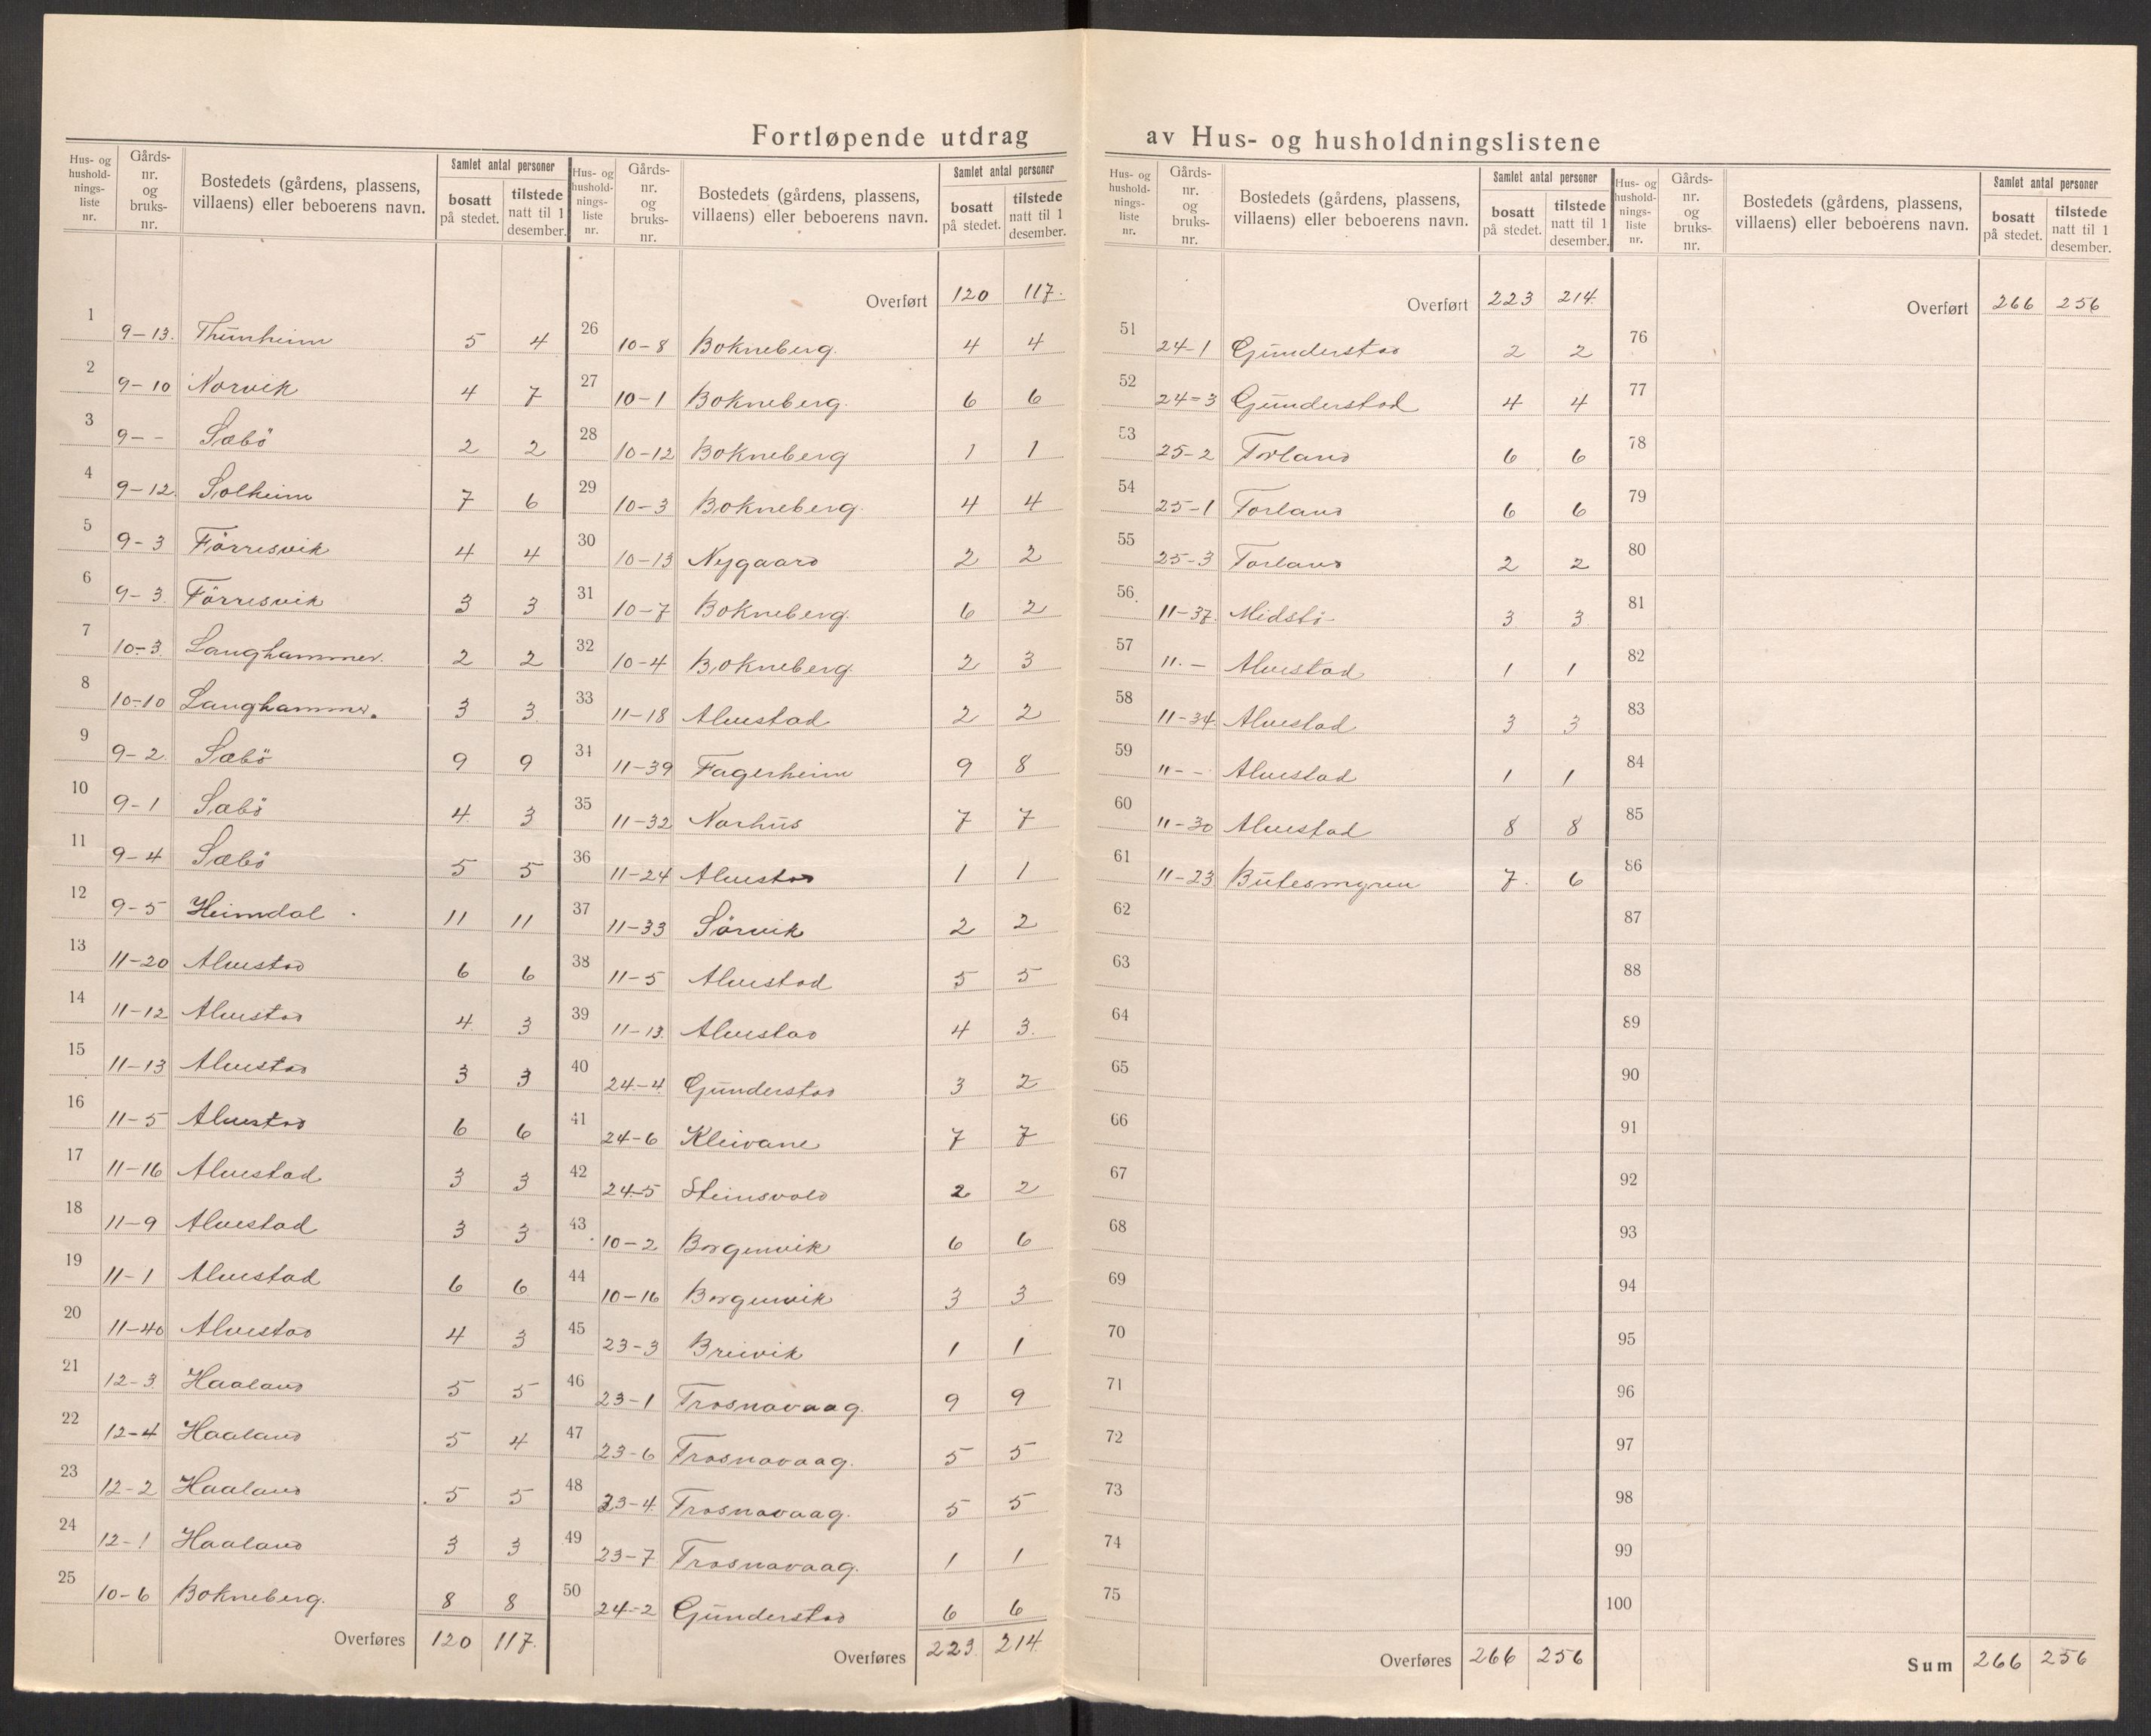 Fortløpende utdrag av Hus- og husholdningslistene
Hus- og husholdnings-liste nr. | Gårds-nr. og bruks-nr. | Bostedets (gårdens, plassens, villaens) eller beboerens navn. | Samlet antal personer | bosatt på stedet. | tilstede natt til 1 desember.
1 9-13. Thunheim 5 4
2 9-10 Norvik 4 7
3 9-- Sæbö 2 2
4 9-12 Solheim 7 6
5 9-3 Förresvik 4 4
6 9-3. Förresvik 3 3
7 10-3. Langhammer. 2 2
8 10-10 Langhammer. 3 3
9 9-2 Sæbö 9 9
10 9-1 Sæbö 4 3
11 9-4 Sæbö 5 5
12 9-5 Heimdal 11 11
13 11-20 Alvestad 6 6
14 11-12 Alvestad 4 3
15 11-13 Alvestad 3 3
16 11-5 Alvestad 6 6
17 11-16 Alvestad 3 3
18 11-9 Alvestad 3 3
19 11-1 Alvestad 6 6
20 11-40 Alvestad 4 3
21 12-3 Haaland 5 5
22 12-4 Haaland 5 4
23 12-2 Haaland 5 5
24 12-1 Haaland 3 3
25 10-6 Bokneberg. 8 8
Overføres 120 117.
Hus- og husholdnings-liste nr. | Gårds-nr. og bruks-nr. | Bostedets (gårdens, plassens, villaens) eller beboerens navn. | Samlet antal personer | bosatt på stedet. | tilstede natt til 1 desember.
Overført 120 117.
26 10-8 Bokneberg. 4 4
27 10-1 Bokneberg. 6 6
28 10-12 Bokneberg 1 1
29 10-3 Bokneberg. 4 4
30 10-13 Nygaard 2 2
31 10-7 Bokneberg. 6 2
32 10-4 Bokneberg. 2 3
33 11-18 Alvestad 2 2
34 11-39 Fagerheim 9 8
35 11-32 Norhus 7 7
36 11-24 Alvestad 1 1
37 11-33 Sörvik 2 2
38 11-5 Alvestad 5 5
39 11-13 Alvestad 4 3.
40 24-4 Gunderstad 3 2
41 24-6 Kleivane 7 7
42 24-5 Steinsvold 2 2
43 10-2 Borgenvik 6 6
44 10-16 Borgenvik 3 3
45 23-3 Breivik 1 1
46 23-1 Trosnavaag. 9 9
47 23-6 Trosnavaag. 5 5
48 23-4 Trosnavaag. 5 5
49 23-7 Trosnavaag. 1 1
50 24-2 Gunderstad 6 6
Overføres 223 214.
Hus- og husholdnings-liste nr. | Gårds-nr. og bruks-nr. | Bostedets (gårdens, plassens, villaens) eller beboerens navn. | Samlet antal personer | bosatt på stedet. | tilstede natt til 1 desember.
Overført 223 214.
51 24-1 Gunderstad 2 2
52 24=3 Gunderstad 4 4
53 25-2 Torland 6 6
54 25-1 Torland 6 6
55 25-3 Torland 2 2
56 11-37. Midsbö 3 3
57 11.- Alvestad 1 1
58 11-34. Alvestad 3 3
59 11-- Alvestad 1 1
60 11-30 Alvestad 8 8
61 11-23 Butesmyren 7. 6
62
63
64
65
66
67
68
69
70
71
72
73
74
75
Overføres 266 256
Hus- og husholdnings-liste nr. | Gårds-nr. og bruks-nr. | Bostedets (gårdens, plassens, villaens) eller beboerens navn. | Samlet antal personer | bosatt på stedet. | tilstede natt til 1 desember.
Overført 266 256
76
77
78
79
80
81
82
83
84
85
86
87
88
89
90
91
92
93
94
95
96
97
98
99
100
Sum 266 256